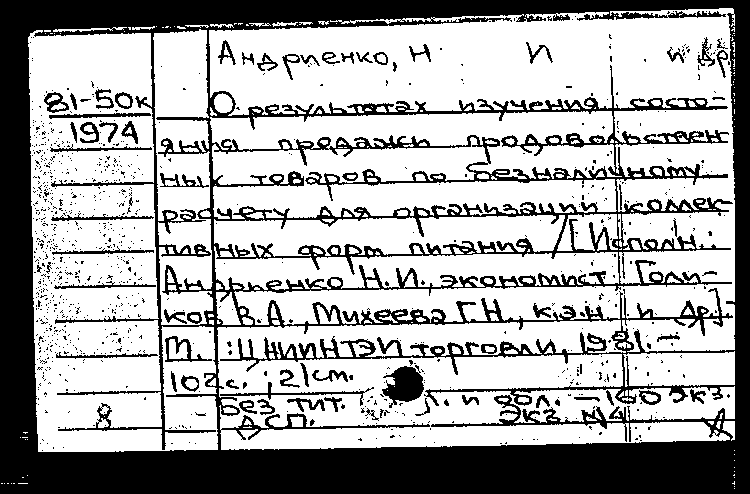 Андриенко, Н И и др
81-50к О результатах изучения состо-
1974 яния продажи продовольствен
ных товаров по безналичному
расчету для организации коллек
тивных форм питания /[Исполн.:
Андриенко Н.И., экономист Голи-
ков В.А., Михеева Г.Н., к.э.н. и др.]-
М. :ЦНИИНТЭИ торговли, 1981. -
102с. ; 21см.
Без тит. л. и обл. - 160 экз.
8 ДСП. Экз. N4